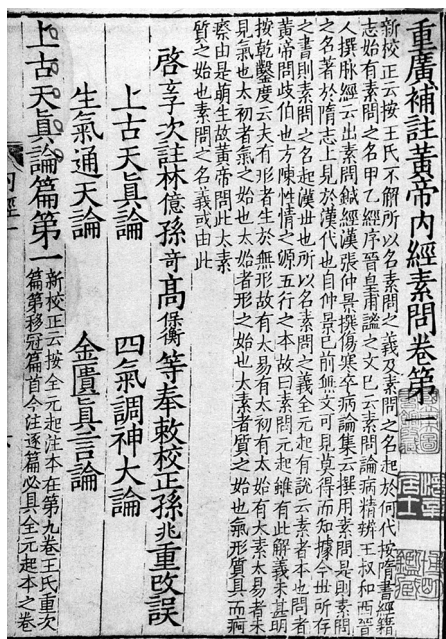 重廣補註黃帝內經素問卷第一
新校正云按王氏不解所以名素問之義及素問之名起於何代按隋書經籍
志始有素問之名甲乙經序晉皇甫謐之文已云素問論病精辨王叔和西晉
人撰脉經云出素問鍼經漢張仲景撰傷寒卒病論集云撰用素問是則素問
之名著於隋志上見於漢代也自仲景已前無文可見莫得而知據今世所存
之書則素問之名起漢世也所以名素問之義全元起有說云素者本也問者
黃帝問歧伯也方陳性情之源五行之本故曰素問元起雖有此解義未甚明
按乾鑿度云夫有形者生於無形故有太易有太初有太始有太素太易者未
見氣也太初者氣之始也太始者形之始也太素者質之始也氣形質具而痾
瘵由是萌生故黃帝問此太素
質之始也素問之名義或由此
啓玄子次註林億孫奇高保衡等奉敕校正孫兆重改誤
上古天眞論 四氣調神大論
生氣通天論 金匱眞言論
上古天眞論篇第一 新校正云按全元起注本在第九卷王氏重次
篇第移冠篇首今注逐篇必具全元起本之卷
內經
居士